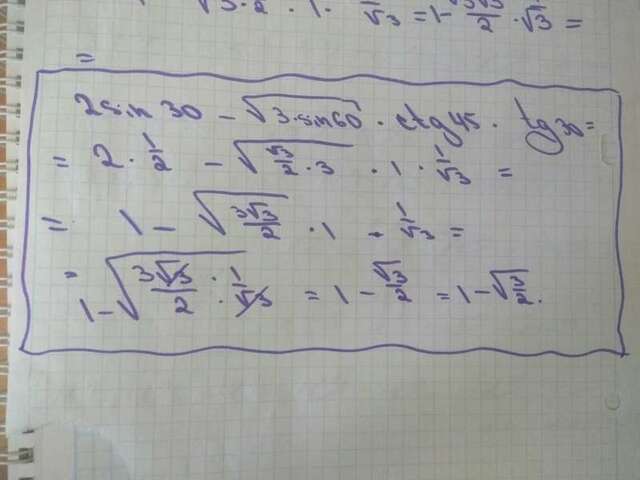 √3·2 · 1 · 1/√3 = 1 - 3√3/2 · 1/√3 =
=
2sin 30 - √3·sin60 · ctg 45 · tg 30 =
= 2 · 1/2 - √(√3/2 · 3) · 1 · 1/√3 =
= 1 - √(3√3/2) · 1 · 1/√3 =
= 1 - √(3√3/2 · 1/√3) = 1 - √3/2 = 1 - √(3/2).